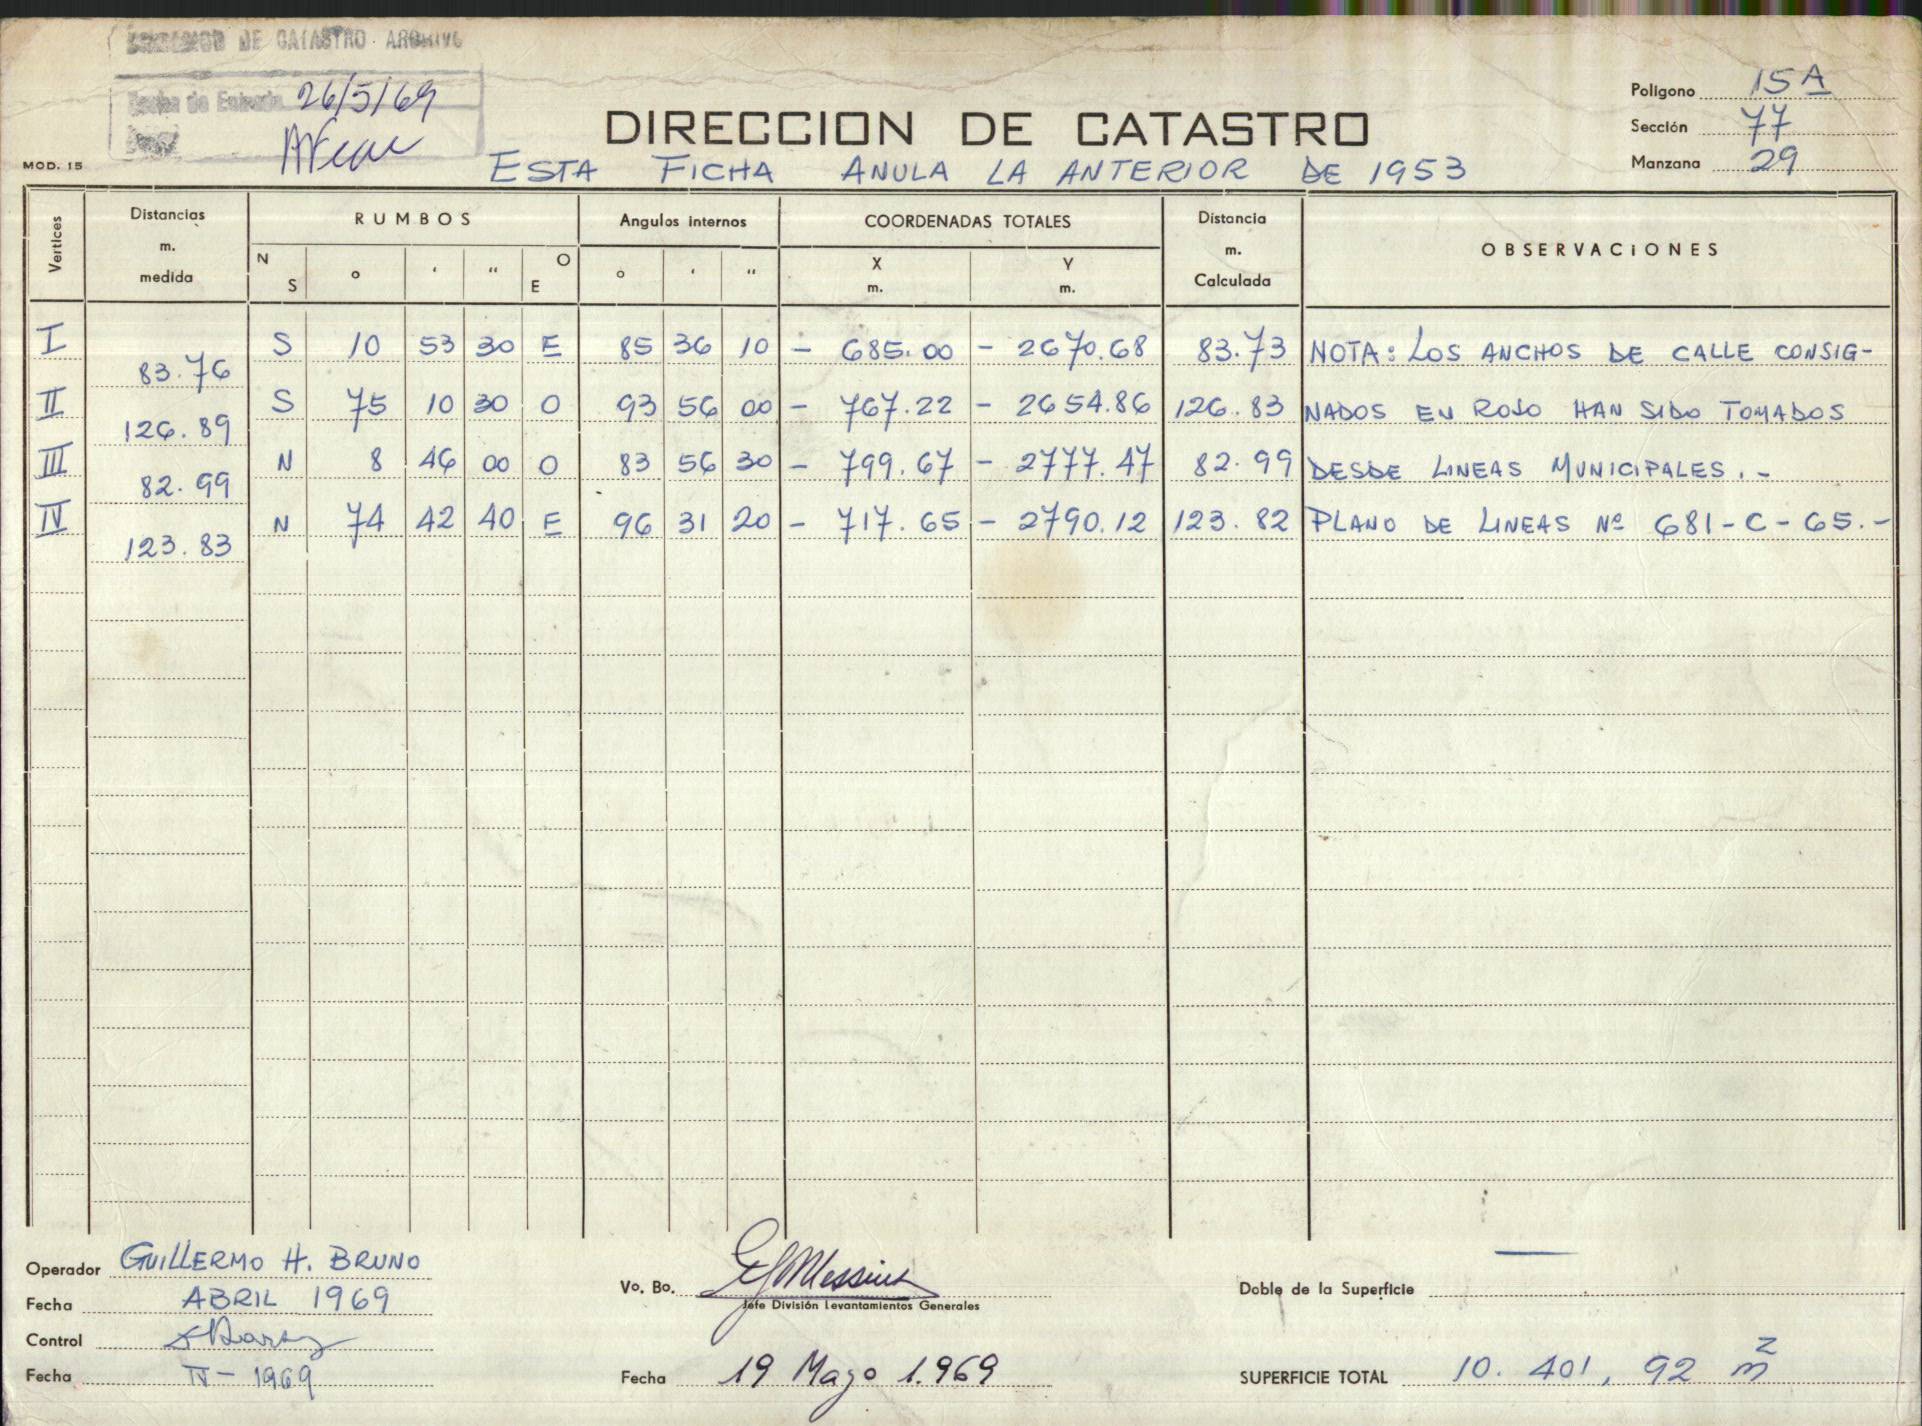 DE CATASTRO - ARCHIVO
Fecha de Entrada 26/5/69
DIRECCION DE CATASTRO
Poligono 15 A
Sección 77
Manzana 29
MOD. 15
ESTA FICHA ANULA LA ANTERIOR DE 1953
Vertices Distancias m. medida RUMBOS Angulos internos COORDENADAS TOTALES Distancia m. Calculada OBSERVACIONES
N S ° ' " O E ° ' " X m. Y m.
I S 10 53 30 E 85 36 10 - 685.00 - 2670.68 83.73 NOTA: LOS ANCHOS DE CALLE CONSIG-
83.76
II S 75 10 30 O 93 56 00 - 767.22 - 2654.86 126.83 NADOS EN ROJO HAN SIDO TOMADOS
126.89
III N 8 46 00 O 83 56 30 - 799.67 - 2777.47 82.99 DESDE LINEAS MUNICIPALES. -
82.99
IV N 74 42 40 E 96 31 20 - 717.65 - 2790.12 123.82 PLANO DE LINEAS Nº 681-C-65.-
123.83
Operador GUILLERMO H. BRUNO
Fecha ABRIL 1969
Control
Fecha IV - 1969
Vo. Bo.
Jefe División Levantamientos Generales
Fecha 19 Mayo 1.969
Doble de la Superficie —
SUPERFICIE TOTAL 10.401,92 m2